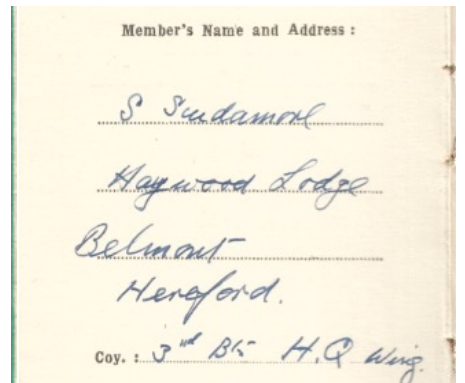 Member's Name and Address :
S Scudamore
Haywood Lodge
Belmont
Hereford.
Coy. : 3rd Bn H.Q Wing.